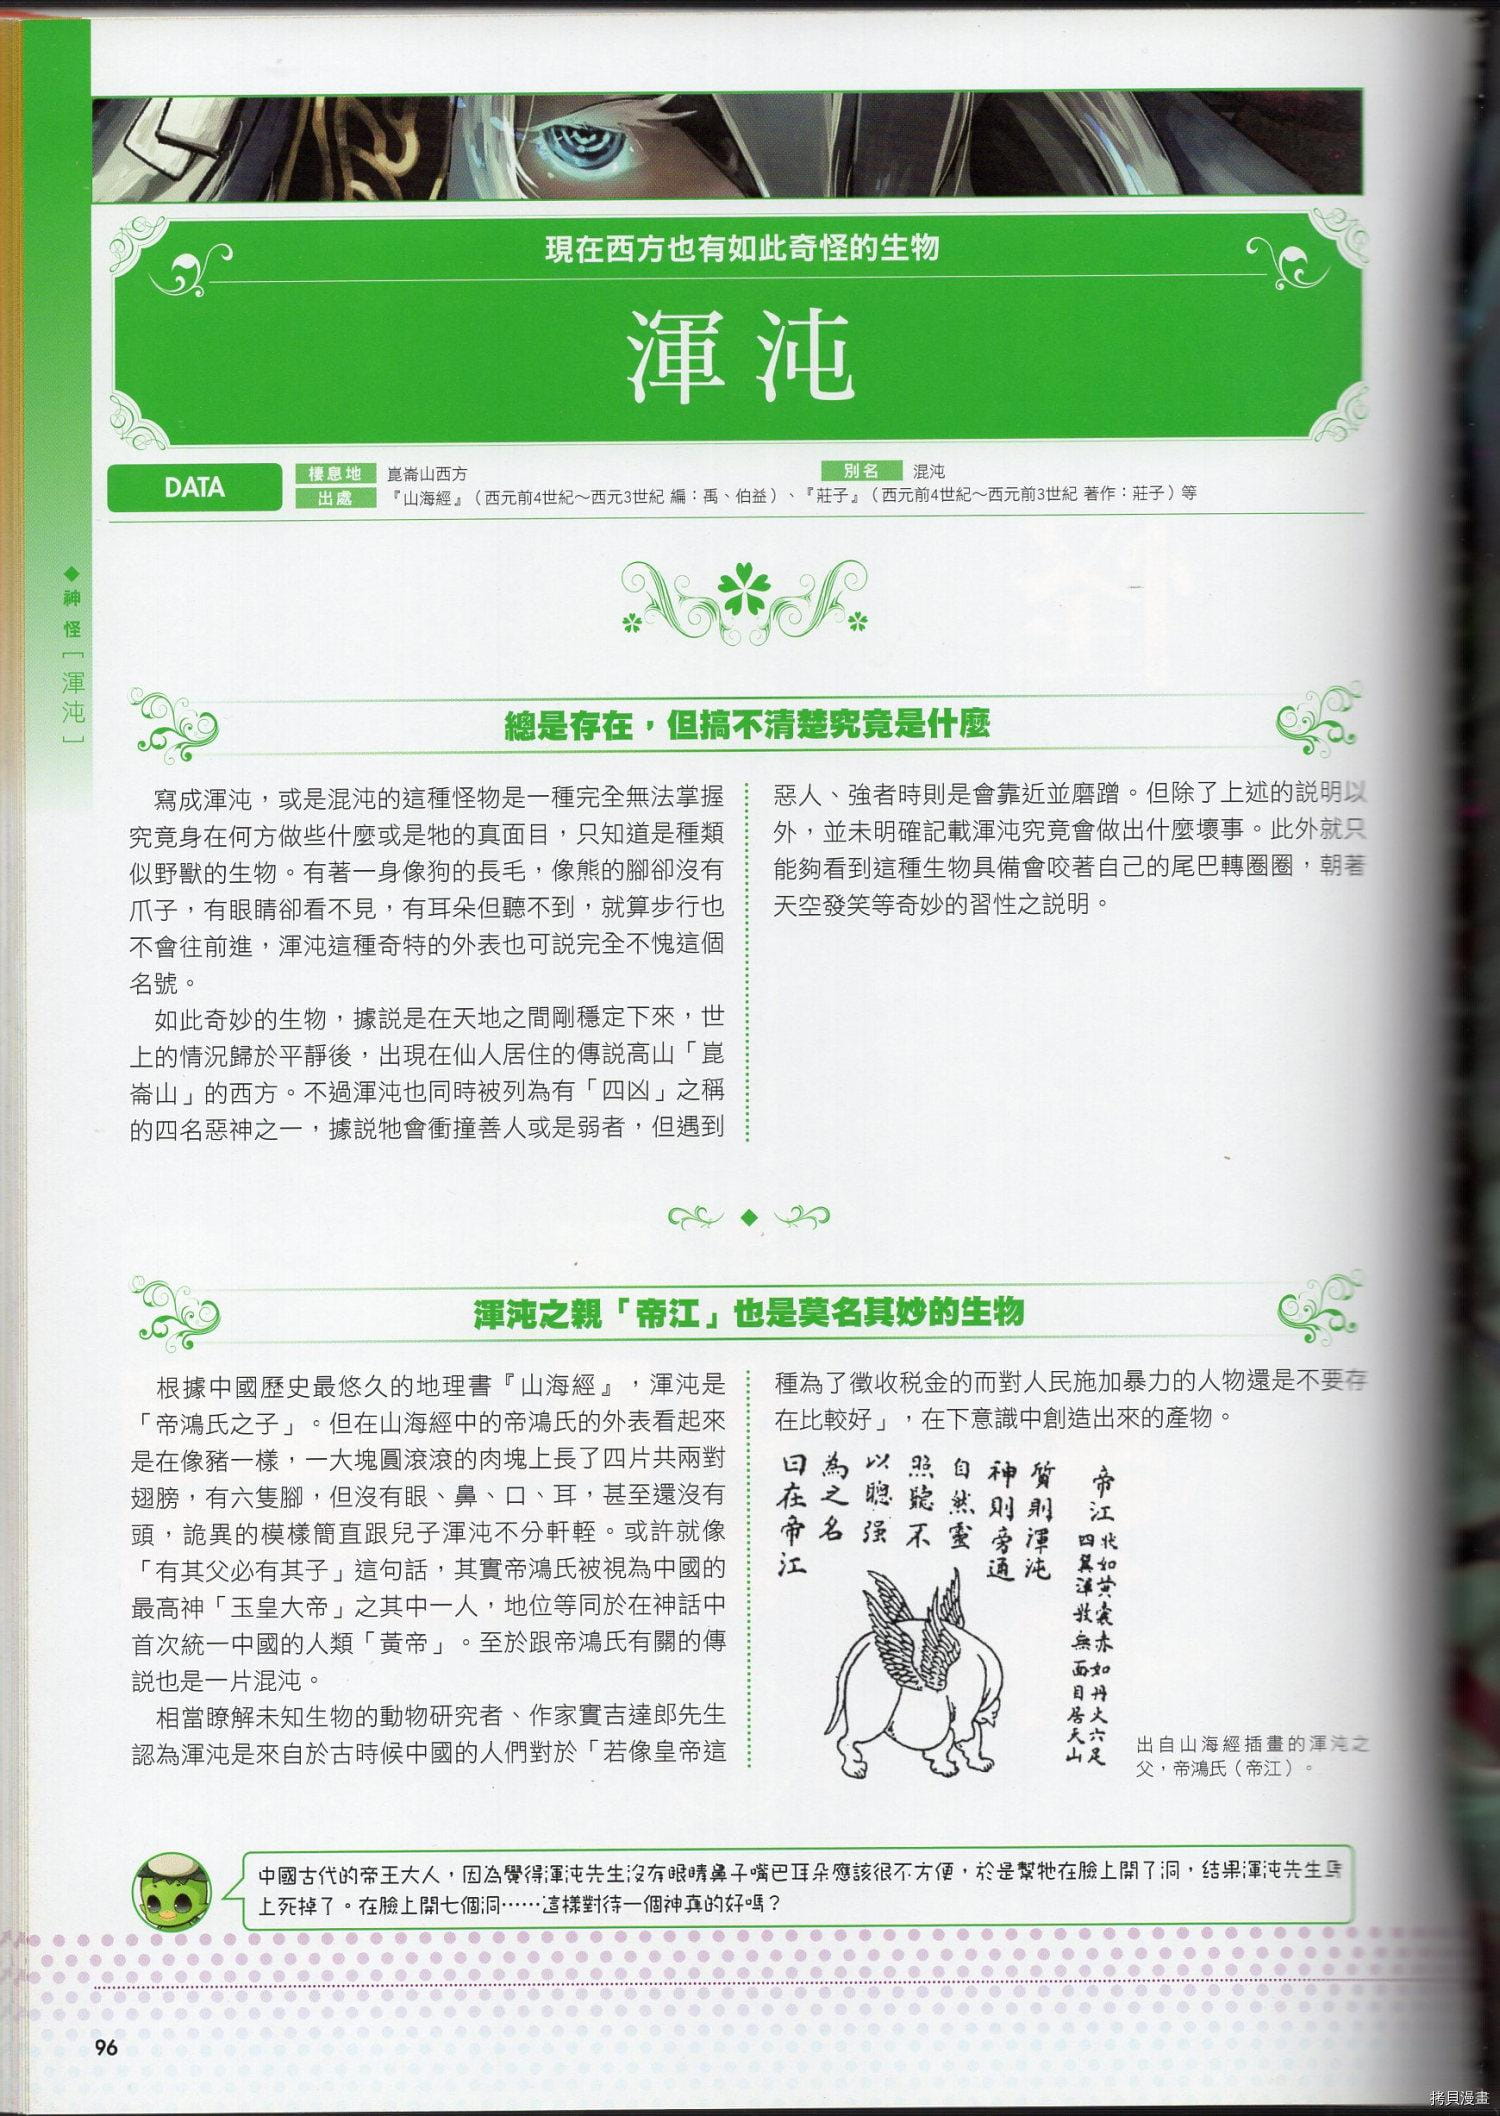 現在西方也有如此奇怪的生物
渾沌
DATA
棲息地 崑崙山西方
別名 混沌
出處 『山海經』（西元前4世紀～西元3世紀 編：禹、伯益）、『莊子』（西元前4世紀～西元前3世紀 著作：莊子）等
◆神怪［渾沌］
總是存在，但搞不清楚究竟是什麼
寫成渾沌，或是混沌的這種怪物是一種完全無法掌握
究竟身在何方做些什麼或是牠的真面目，只知道是種類
似野獸的生物。有著一身像狗的長毛，像熊的腳卻沒有
爪子，有眼睛卻看不見，有耳朵但聽不到，就算步行也
不會往前進，渾沌這種奇特的外表也可說完全不愧這個
名號。
如此奇妙的生物，據說是在天地之間剛穩定下來，世
上的情況歸於平靜後，出現在仙人居住的傳說高山「崑
崙山」的西方。不過渾沌也同時被列為有「四凶」之稱
的四名惡神之一，據說牠會衝撞善人或是弱者，但遇到
惡人、強者時則是會靠近並磨蹭。但除了上述的說明以
外，並未明確記載渾沌究竟會做出什麼壞事。此外就只
能夠看到這種生物具備會咬著自己的尾巴轉圈圈，朝著
天空發笑等奇妙的習性之說明。
渾沌之親「帝江」也是莫名其妙的生物
根據中國歷史最悠久的地理書『山海經』，渾沌是
「帝鴻氏之子」。但在山海經中的帝鴻氏的外表看起來
是在像豬一樣，一大塊圓滾滾的肉塊上長了四片共兩對
翅膀，有六隻腳，但沒有眼、鼻、口、耳，甚至還沒有
頭，詭異的模樣簡直跟兒子渾沌不分軒輊。或許就像
「有其父必有其子」這句話，其實帝鴻氏被視為中國的
最高神「玉皇大帝」之其中一人，地位等同於在神話中
首次統一中國的人類「黃帝」。至於跟帝鴻氏有關的傳
說也是一片混沌。
相當瞭解未知生物的動物研究者、作家實吉達郎先生
認為渾沌是來自於古時候中國的人們對於「若像皇帝這
種為了徵收稅金的而對人民施加暴力的人物還是不要存
在比較好」，在下意識中創造出來的產物。
帝江
狀如黃囊赤如丹火六足
四翼渾敦無面目居天山
質則渾沌
神則旁通
自然靈
照聽不
以聰强
為之名
曰在帝江
出自山海經插畫的渾沌之
父，帝鴻氏（帝江）。
中國古代的帝王大人，因為覺得渾沌先生沒有眼睛鼻子嘴巴耳朵應該很不方便，於是幫牠在臉上開了洞，結果渾沌先生馬
上死掉了。在臉上開七個洞……這樣對待一個神真的好嗎？
96
拷貝漫畫